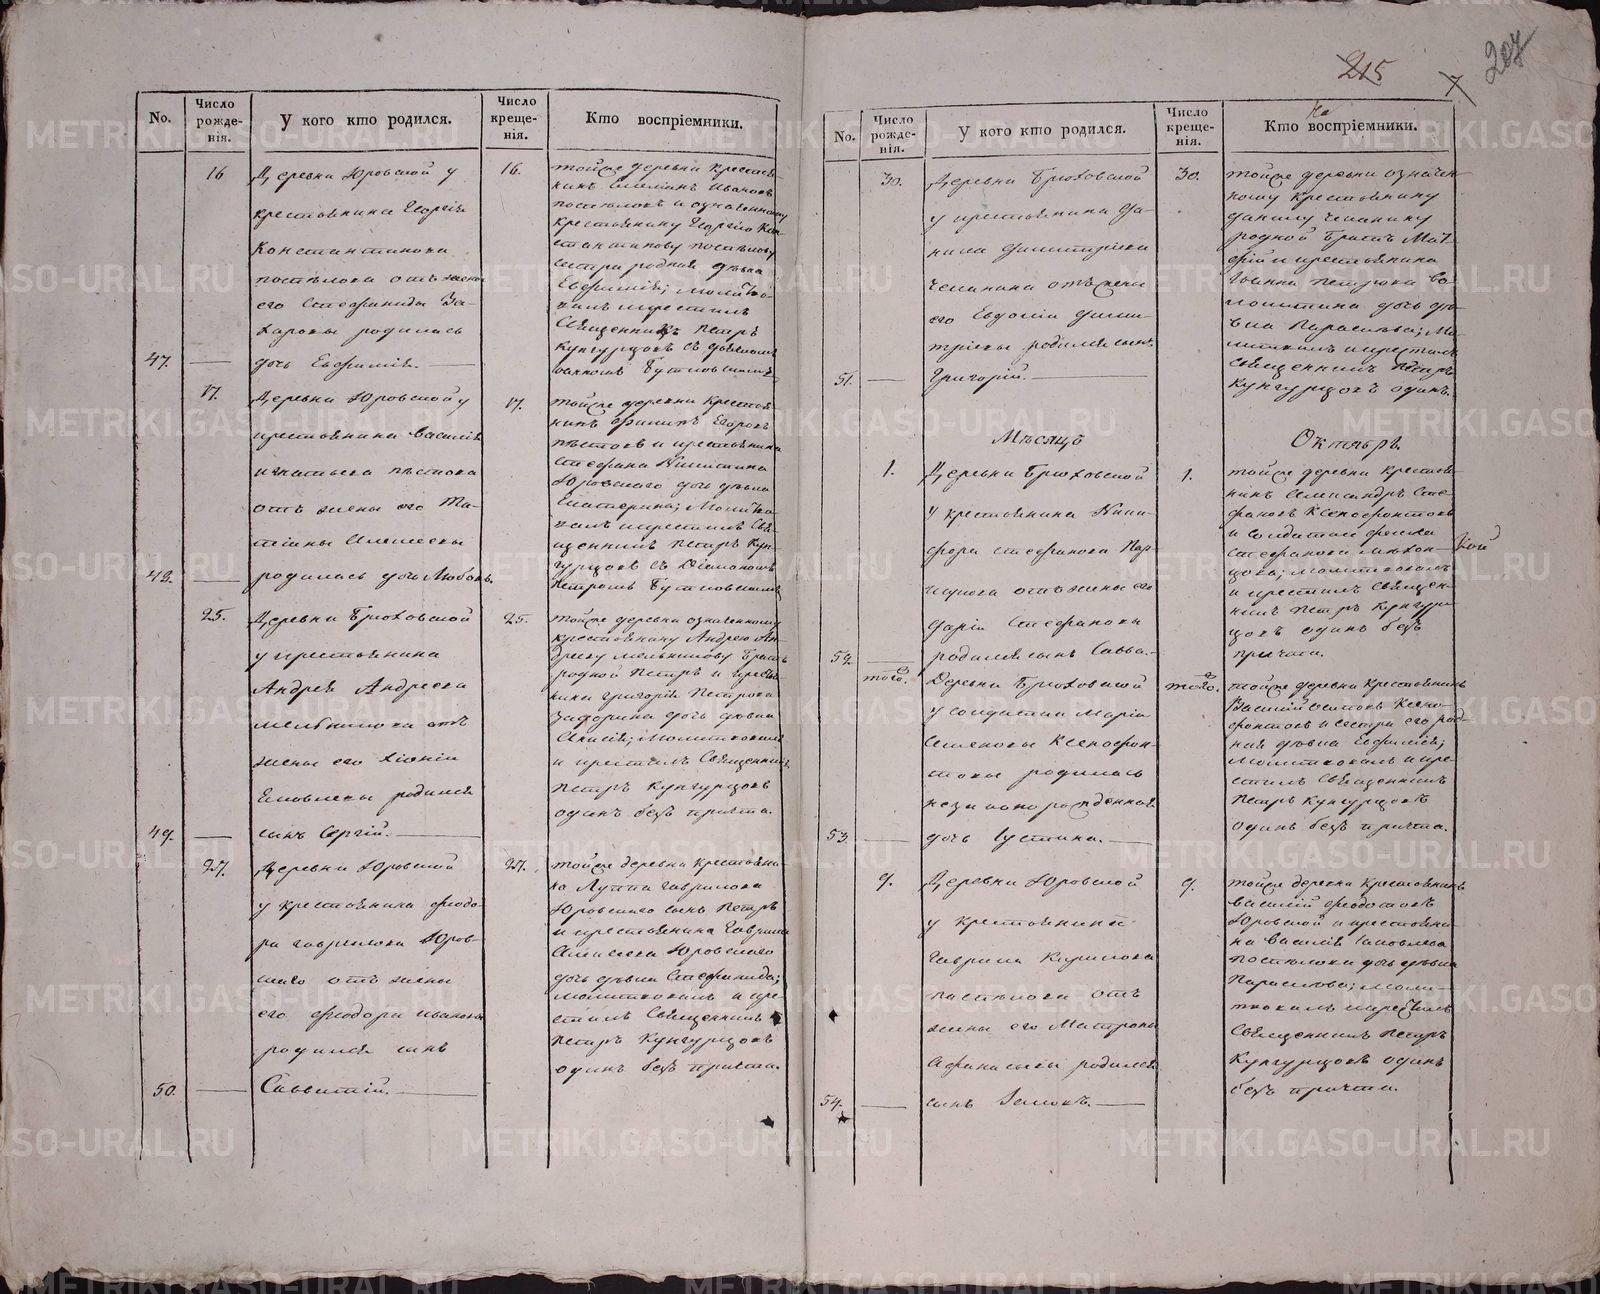 215
207
No.
Число рожде-нія.
У кого кто родился.
Число креще-нія.
Кто воспріемники.
16
Деревни Юровской у
крестьянина Георгія
Константинова
постѣлова отъ жены
его Стефаниды За-
харовы родилась
47.
дочь Евфимія.
16.
тойже деревни крестья-
нинъ Иванов
и означенному
крестьянину Георгію Кон-
стантинову
сестра родная дѣвка
Евфимія; молитво-
валъ и крестилъ
Священникъ Петръ
Кунгурцовъ съ
17.
Деревни Юровской у
крестьянина Василія
Игнатьева
отъ жены его Та-
тіаны Алексѣевы
48.
родилась дочь Любовь.
17.
тойже деревни крестья-
нинъ Филипъ Егоровъ
и крестьянина
Стефана Никитина
Юровскаго дочь дѣвка
Екатерина; молитво-
валъ и крестилъ Свя-
щенникъ Петръ Кун-
гурцовъ съ Діакономъ
Петромъ
25.
Деревни Брюховской
у крестьянина
Андрея Андреева
Мельникова отъ
жены его
Яковлевы родился
49.
сынъ Сергій.
25.
тойже деревни означенному
крестьянину Андрею Ан-
дрееву Мельникову братъ
родной Петръ и крестья-
нина Григорія Петрова
дочь дѣвка
молитвовалъ
и крестилъ Священникъ
Петръ Кунгурцовъ
одинъ безъ причта.
27.
Деревни Юровской
у крестьянина Ѳеодо-
ра Гаврилова Юров-
скаго отъ жены
его Ѳеодоры Ивановы
родился сынъ
50.
Савватій.
27.
тойже деревни крестьяни-
на Луппа Гаврилова
Юровскаго сынъ Петръ
и крестьянина Гаврила
Алексѣева Юровскаго
дочь дѣвка Стефанида;
молитвовалъ и кре-
стилъ Священникъ
Петръ Кунгурцовъ
одинъ безъ причта.
No.
Число рожде-нія.
У кого кто родился.
Число креще-нія.
Кто воспріемники.
30.
Деревни Брюховской
у крестьянина Да-
нила Димитріева
отъ жены
его Евдокіи Дими-
тріевы родился сынъ
51.
Григорій.
30.
тойже деревни означен-
ному крестьянину
Данилу
родной братъ Мат-
фій и крестьянина
дочь дѣ-
вка Параскева; мо-
литвовалъ и крестилъ
Священникъ Петръ
Кунгурцовъ одинъ.
Мѣсяцъ
Октябрь.
1.
Деревни Брюховской
у крестьянина Ники-
фора Стефанова Пер-
отъ жены его
Даріи Стефановы
52.
родился сынъ Савва.
1.
тойже деревни крестья-
нинъ Александръ Сте-
фановъ Ксенофонтовъ
и солдатка
Стефанова
молитвовалъ
и крестилъ Священ-
никъ Петръ Кунгур-
цовъ одинъ безъ
причта.
тогоже.
Деревни Брюховской
у солдатки Маріи
Семеновы Ксенофон-
товы родилась
незаконорожденная
53.
дочь Іустина.
тогоже.
тойже деревни крестьянинъ
Василій Осиповъ Ксено-
фонтовъ и сестра его род-
ная дѣвка Евфимія;
молитвовалъ и кре-
стилъ Священникъ
Петръ Кунгурцовъ
одинъ безъ причта.
9.
Деревни Юровской
у крестьянина
Гаврила Кирилова
постѣлова отъ
жены его Матроны
Афанасьевы родился
54.
сынъ
9.
тойже деревни крестьянинъ
Василій Ѳеодотовъ
Юровской и крестьяни-
на Василія Яковлева
постѣлова дочь дѣвка
Параскева; моли-
твовалъ и крестилъ
Священникъ Петръ
Кунгурцовъ одинъ
безъ причта.
METRIKI.GASO-URAL.RU